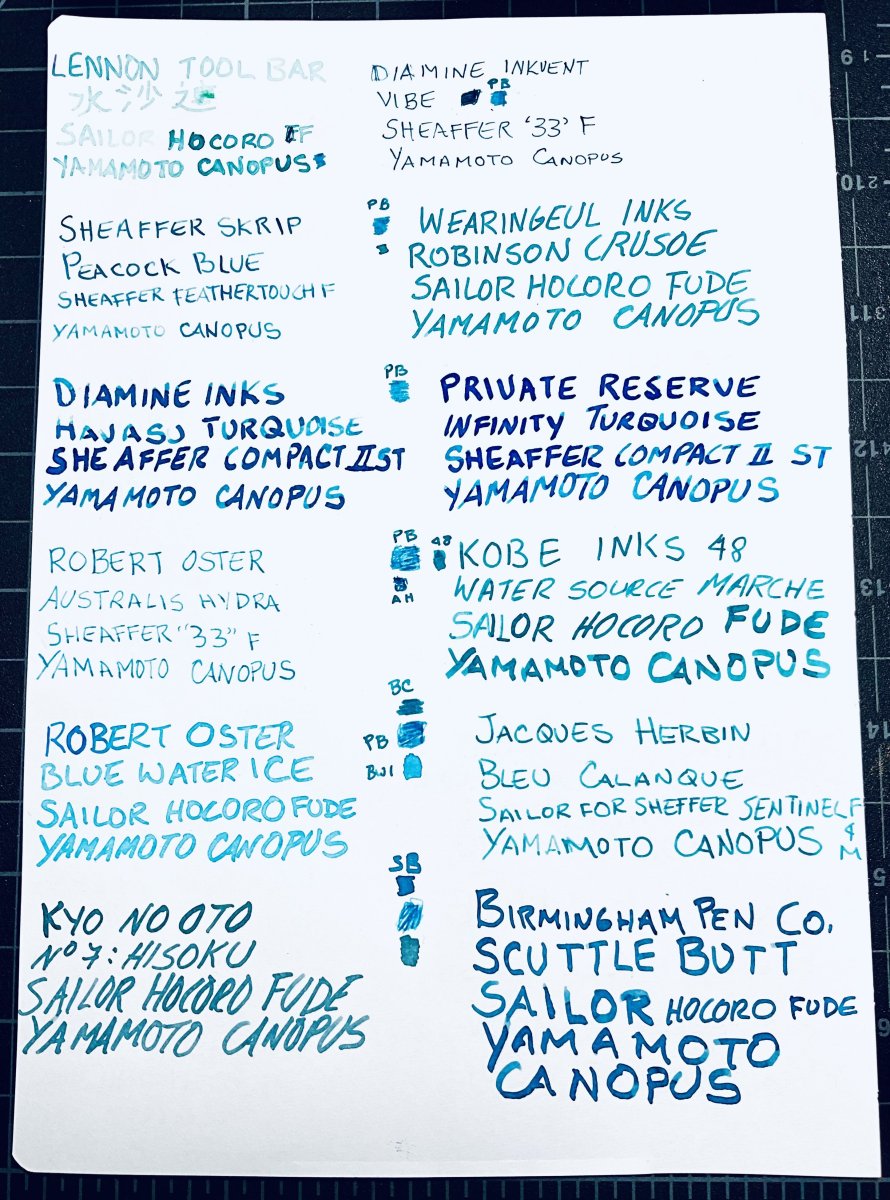 LENNON TOOL BAR
水沙連
SAILOR HOCORO FF
YAMAMOTO CANOPUS
DIAMINE INKVENT
VIBE PB
SHEAFFER '33' F
YAMAMOTO CANOPUS
SHEAFFER SKRIP
PEACOCK BLUE
SHEAFFER FEATHERTOUCH F
YAMAMOTO CANOPUS
PB
WEARINGEUL INKS
ROBINSON CRUSOE
SAILOR HOCORO FUDE
YAMAMOTO CANOPUS
DIAMINE INKS
HAVASU TURQUOISE
SHEAFFER COMPACT II ST
YAMAMOTO CANOPUS
PB
PRIVATE RESERVE
INFINITY TURQUOISE
SHEAFFER COMPACT II ST
YAMAMOTO CANOPUS
ROBERT OSTER
AUSTRALIS HYDRA
SHEAFFER "33" F
YAMAMOTO CANOPUS
PB
AH
48
KOBE INKS 48
WATER SOURCE MARCHE
SAILOR HOCORO FUDE
YAMAMOTO CANOPUS
ROBERT OSTER
BLUE WATER ICE
SAILOR HOCORO FUDE
YAMAMOTO CANOPUS
BC
PB
BWI
JACQUES HERBIN
BLEU CALANQUE
SAILOR FOR SHEFFER SENTINEL F
YAMAMOTO CANOPUS & M
KYO NO OTO
Nº 7: HISOKU
SAILOR HOCORO FUDE
YAMAMOTO CANOPUS
SB
BIRMINGHAM PEN CO.
SCUTTLE BUTT
SAILOR HOCORO FUDE
YAMAMOTO
CANOPUS
9
10
11
12
13
14
5
6